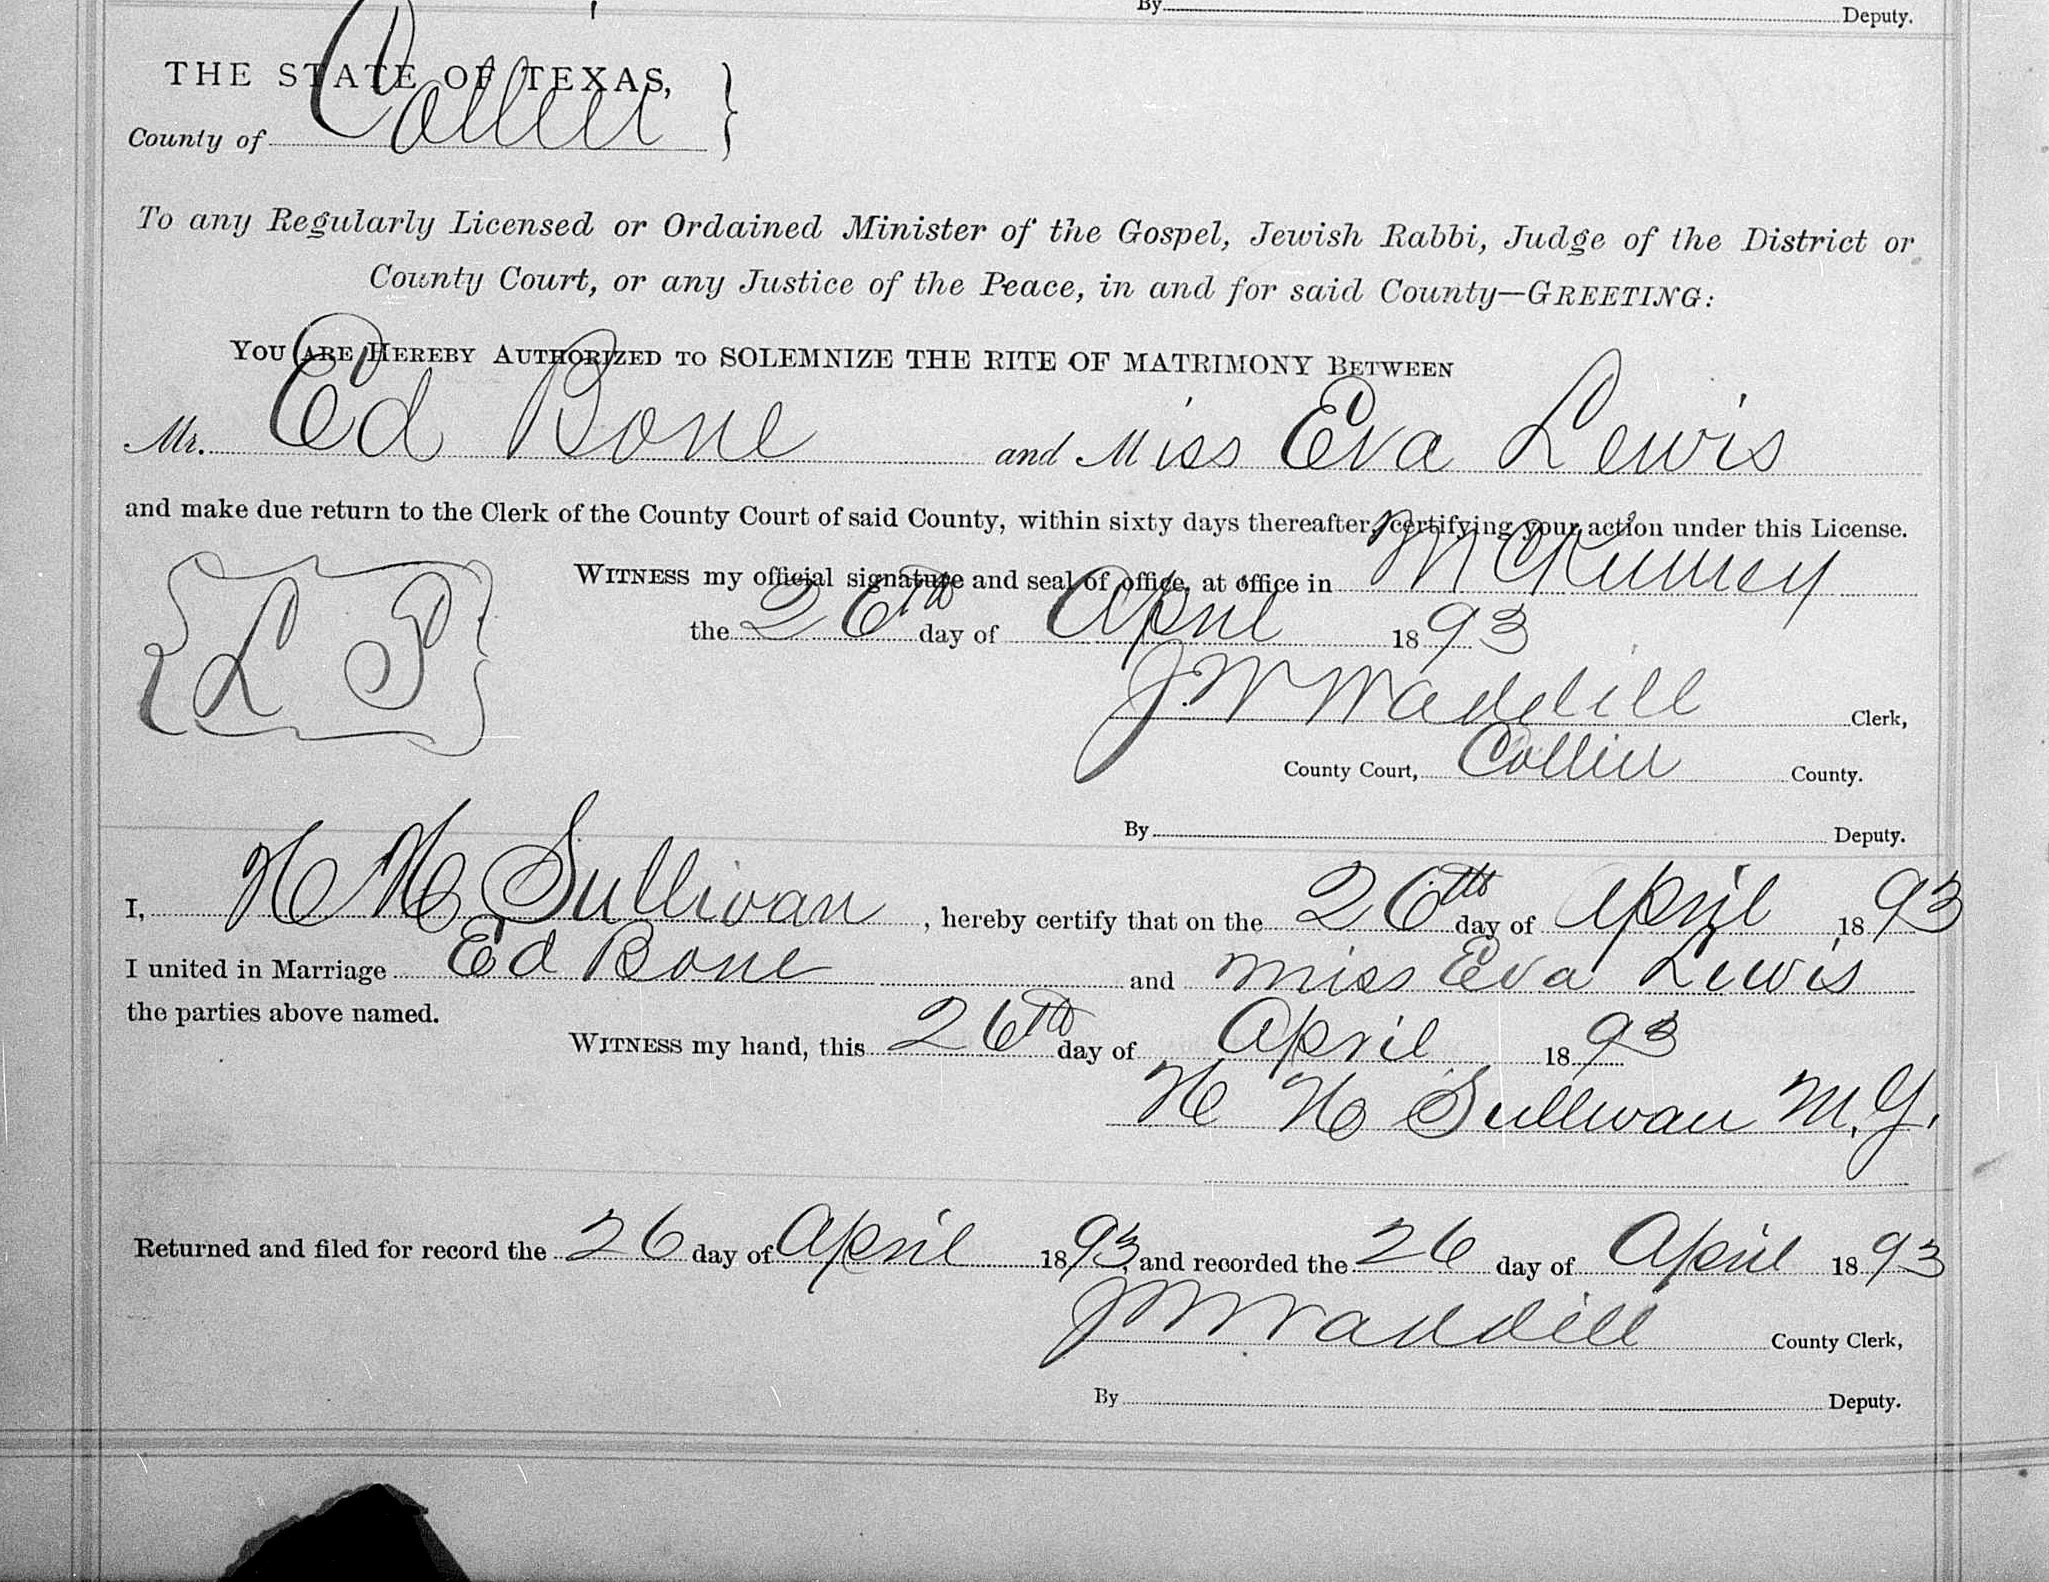 By Deputy.
THE STATE OF TEXAS,
County of Collin
To any Regularly Licensed or Ordained Minister of the Gospel, Jewish Rabbi, Judge of the District or
County Court, or any Justice of the Peace, in and for said County—GREETING:
YOU ARE HEREBY AUTHORIZED TO SOLEMNIZE THE RITE OF MATRIMONY BETWEEN
Mr. Ed Bone and Miss Eva Lewis
and make due return to the Clerk of the County Court of said County, within sixty days thereafter, certifying your action under this License.
WITNESS my official signature and seal of office, at office in McKinney
the 26th day of April 1893
L S
J. W Waddill Clerk,
County Court, Collin County.
By Deputy.
I, H H Sullivan, hereby certify that on the 26th day of April 1893
I united in Marriage Ed Bone and Miss Eva Lewis
the parties above named.
WITNESS my hand, this 26th day of April 1893
H H Sullivan M. G.
Returned and filed for record the 26 day of April 1893, and recorded the 26 day of April 1893
J W Waddill County Clerk,
By Deputy.